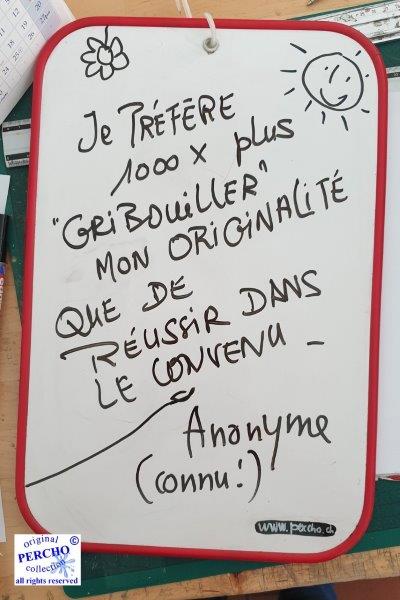 Je PRÉFÈRE
1000 x plus
"GRIBOUILLER"
MON ORIGINALITÉ
QUE DE
RÉUSSIR DANS
LE CONVENU _
Anonyme
(connu!)
www.percho.ch
original ©
PERCHO
collection
all rights reserved